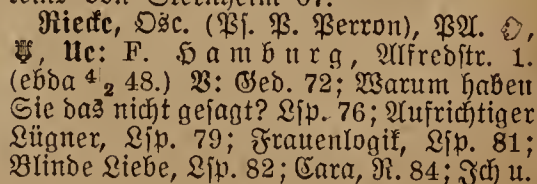 Riecke, Osc. (Ps. P. Perron), PA.
Uc: F. Hamburg, Alfredstr. 1.
(ebda 4/2 48.) V: Ged. 72; Warum haben
Sie das nicht gesagt? Lsp. 76; Aufrichtiger
Lügner, Lsp. 79; Frauenlogik, Lsp. 81;
Blinde Liebe, Lsp. 82; Cara, R. 84; Ich u.